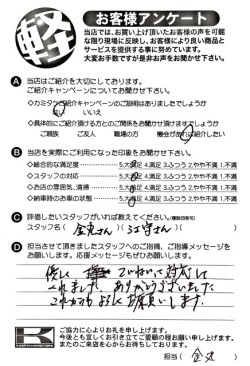 軽
お客様アンケート
当店では、お買い上げ頂いたお客様の声を可能
な限り現場に反映し、お客様により良い商品と
サービスを提供する事に努めています。
大変お手数ですが是非お声をお聞かせ下さい。
A 当店はご紹介を大切にしております。
ご紹介キャンペーンについてお聞かせ下さい。
◇カミタケご紹介キャンペーンのご説明はありましたでしょうか
はい いいえ
◇具体的にご紹介頂ける方とのご関係をお聞かせ頂けますでしょうか
ご親族 ご友人 職場の方 機会があれば紹介したい
B 当店を実際にご利用になった印象をお聞かせ下さい。
◇総合的な満足度 5.大満足 4.満足 3.ふつう 2.やや不満 1.不満
◇スタッフの対応 5.大満足 4.満足 3.ふつう 2.やや不満 1.不満
◇お店の雰囲気、清掃 5.大満足 4.満足 3.ふつう 2.やや不満 1.不満
◇納車時のお車の状態 5.大満足 4.満足 3.ふつう 2.やや不満 1.不満
C 評価したいスタッフがいれば教えてください。(複数回答可)
スタッフ名( 金丸さん )( さん )
D 担当させて頂きましたスタッフへのご指摘、ご指導メッセージを
お願いします。応援メッセージもぜひお願いします。
優しく ていねいに対応して
くれました。ありがとうございました
これからもよろしくお願いします。
K
ご協力に心よりお礼を申し上げます。
今後とも宜しくお引き立てご愛顧の程お願い申し上げます。
またのご来店を心からお待ちしております。
担当( 金丸 )